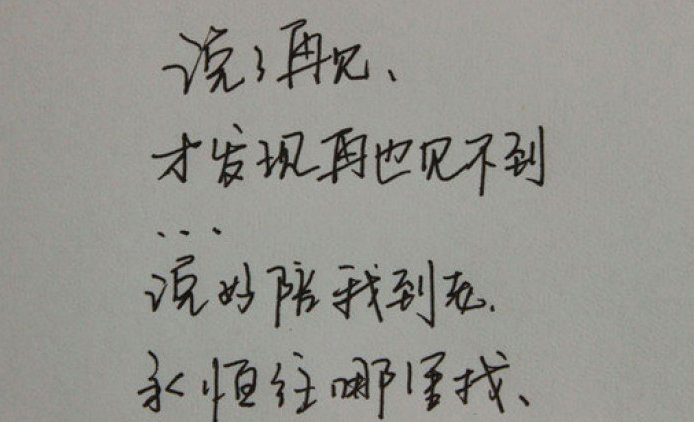 说了再见、
才发现再也见不到
...
说好陪我到老.
永恒往哪里找、